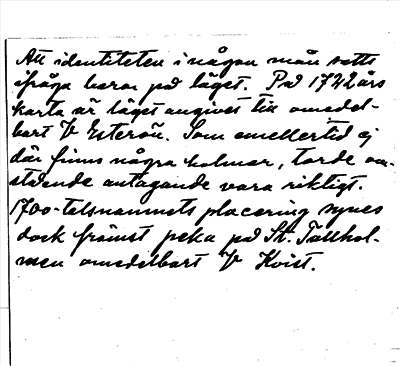 Att identiteten i någon mån satts
ifråga beror på läget. På 1742 års
karta är läget angivet till omedel-
bart V Esterön. Som emellertid ej
där finns några holmar, torde ov-
stående antagande vara riktigt.
1700-talsnamnets placering synes
dock främst peka på St. Tallhol-
men omedelbart V Kvist.